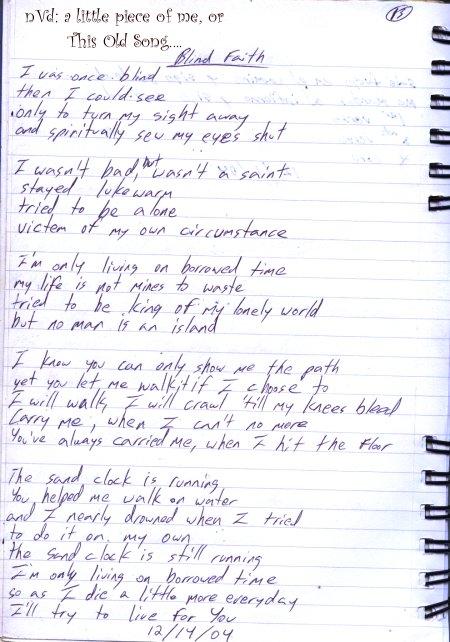 nVd: a little piece of me, or
This Old Song....
13
Blind Faith
I was once blind
then I could see
only to turn my sight away
and spiritually sew my eyes shut
I wasn't bad, but wasn't a saint
stayed lukewarm
tried to be alone
victem of my own circumstance
I'm only living on borrowed time
my life is not mines to waste
tried to be king of my lonely world
but no man is an island
I know you can only show me the path
yet you let me walk it if I choose to
I will walk, I will crawl 'till my knees bleed
Carry me, when I can't no more
You've always carried me, when I hit the floor
The sand clock is running
You helped me walk on water
and I nearly drowned when I tried
to do it on my own
the sand clock is still running
I'm only living on borrowed time
so as I die a little more everyday
I'll try to live for You
12/14/04